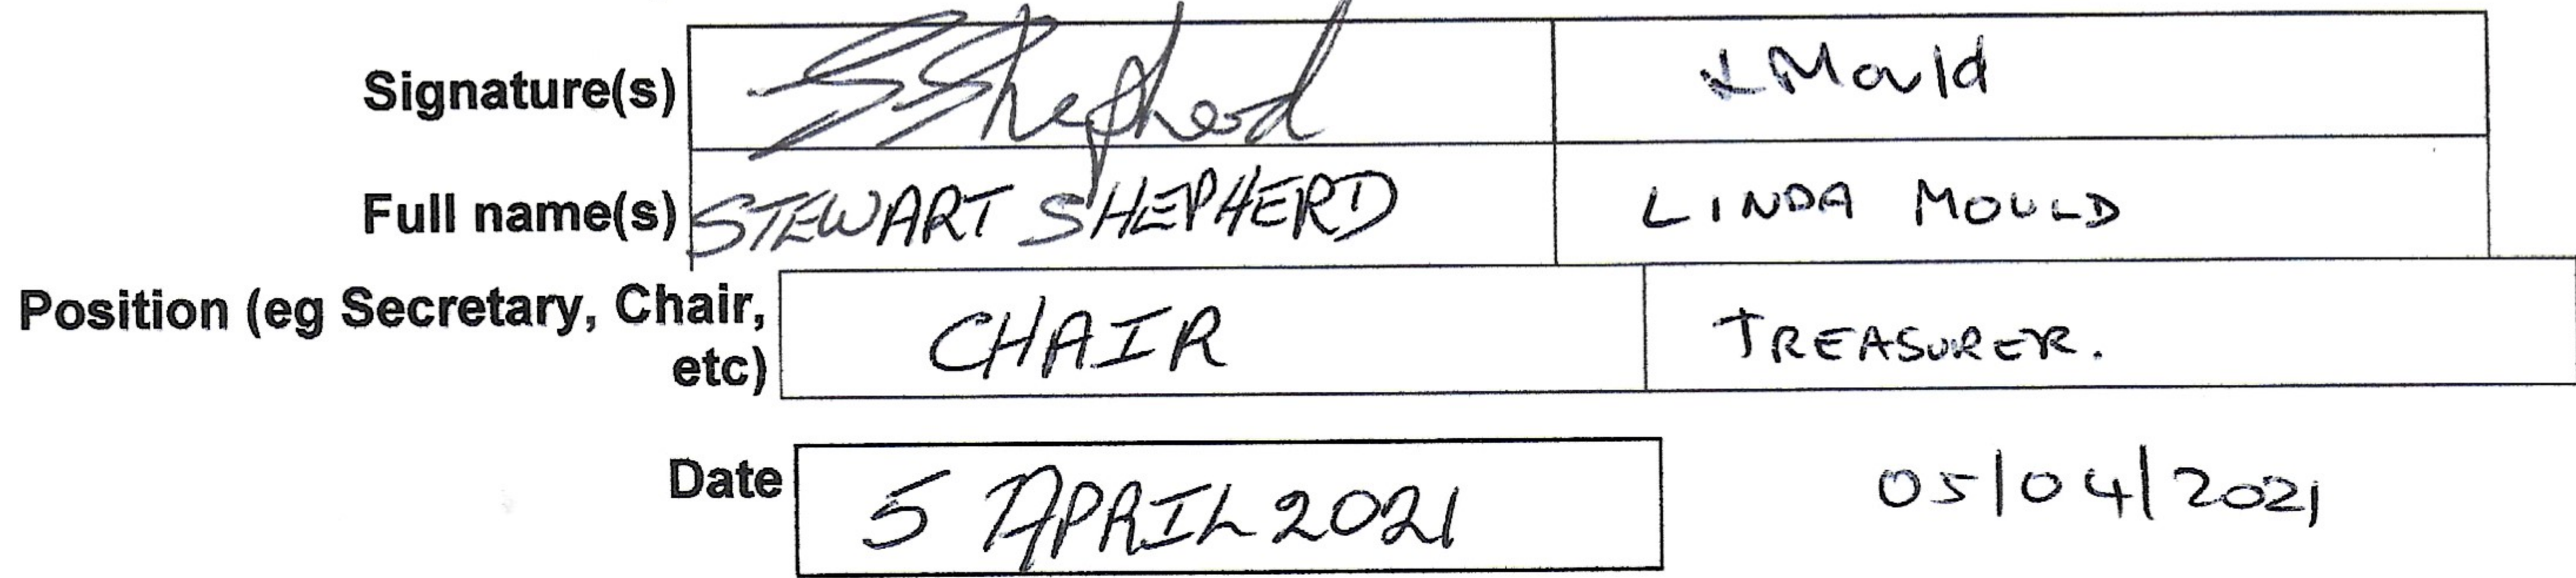 Signature(s) SShepherd LMould
Full name(s) STEWART SHEPHERD LINDA MOULD
Position (eg Secretary, Chair, CHAIR TREASURER.
etc)
Date 5 APRIL 2021 05/04/2021